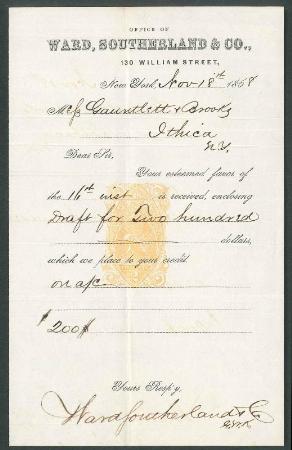 OFFICE OF
WARD, SOUTHERLAND & CO.,
130 WILLIAM STREET,
New York, Nov 18th 1868
Messs Gauntlett & Brooks
Ithica
N.Y.
Dear Sir,
Your esteemed favor of
the 16th inst is received, enclosing
Draft for Two hundred
dollars,
which we place to your credit.
on a/c
$200//
Yours Resp'y,
Ward Southerland & Co